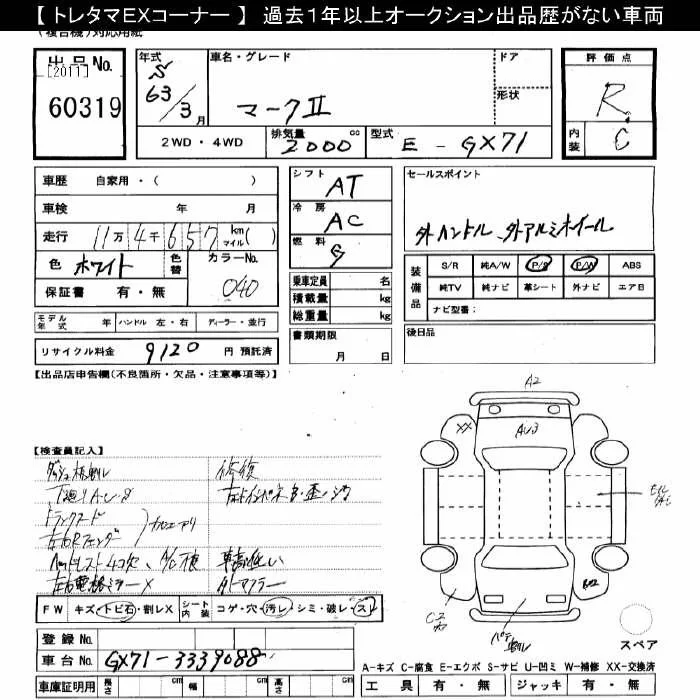 【 トレタマEXコーナー 】 過去1年以上オークション出品歴がない車両
(複合機)対応用紙
出品No.
[2011]
60319
年式
S
63/3月
車名・グレード
マークⅡ
ドア
形状
評価点
R
内装
C
2WD・4WD
排気量
2000
cc
型式
E - GX71
車歴 自家用・( )
車検 年 月
走行 11万 4千 657 km マイル( )
色 ホワイト
色替
カラーNo.
040
保証書 有・無
シフト
AT
冷房
AC
燃料
G
乗車定員 名
積載量 kg
総重量 kg
書類期限
月 日
セールスポイント
外ハンドル、外アルミホイール
装備品
S/R 純A/W P/S P/W ABS
純TV 純ナビ 革シート 外ナビ エアB
ナビ型番:
後日品
モデル年式 年 ハンドル 左・右 ディーラー・並行
リサイクル料金 9120 円 預託済
【出品店申告欄(不良箇所・欠品・注意事項等)】
【検査員記入】
修復
トランクフード
車高低い
外マフラー
FW キズ・トビ石・割レX
シート内装
コゲ・穴・汚レ・シミ・破レ・スレ
登録No.
車台No. GX71-3339088
車庫証明用 長さ cm 幅 cm 高さ cm
A2
AU3
XX
スペア
A-キズ C-腐食 E-エクボ S-サビ U-凹ミ W-補修 XX-交換済
工具 有・無 ジャッキ 有・無